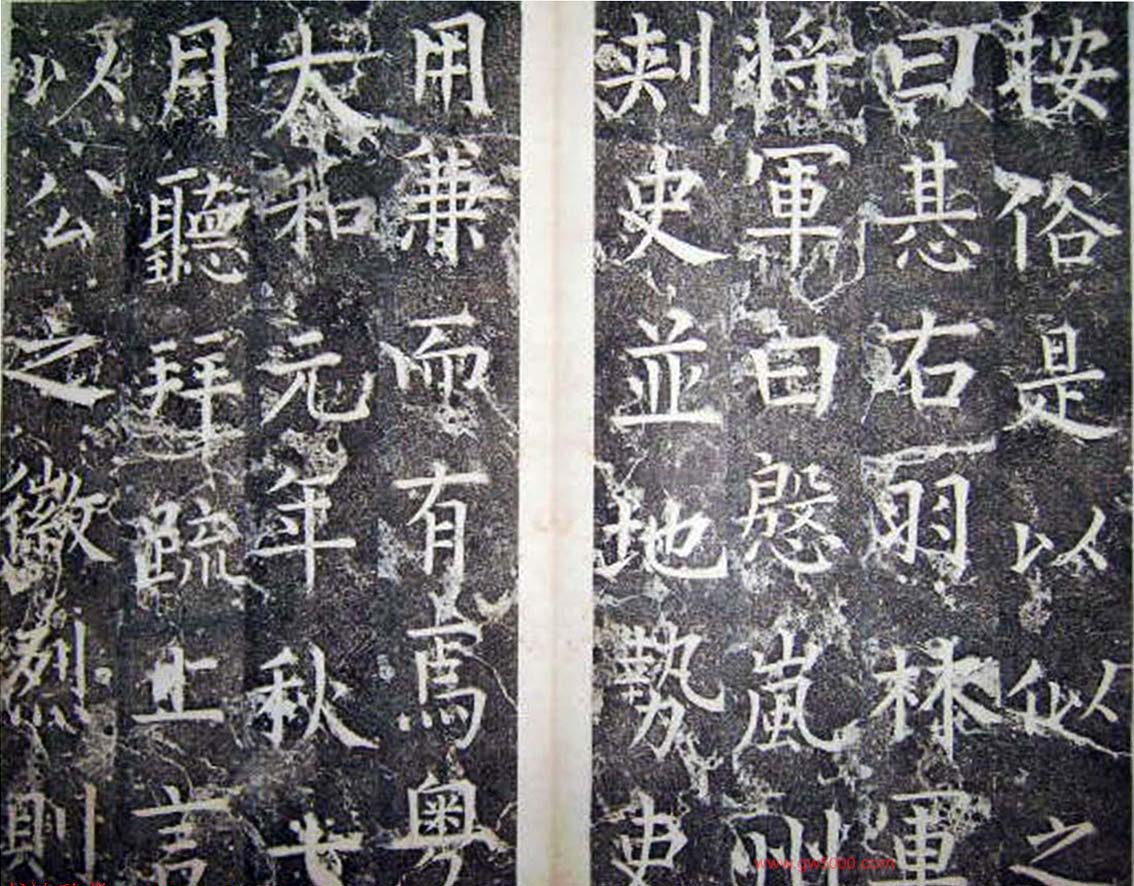 按俗是以似之
曰惎右羽林軍
將軍曰慇嵐州
刺史並地勢吏
用兼而有焉粤
太和元年秋七
月聽拜疏上言
以公之徽烈則